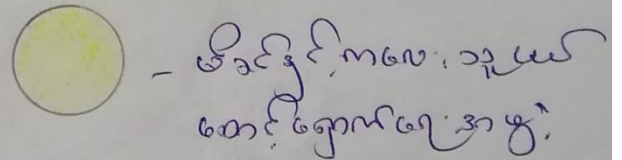 - မိခင်နှင့်ကလေး သူငယ်
စောင့်ရှောက်ရေးအဖွဲ့